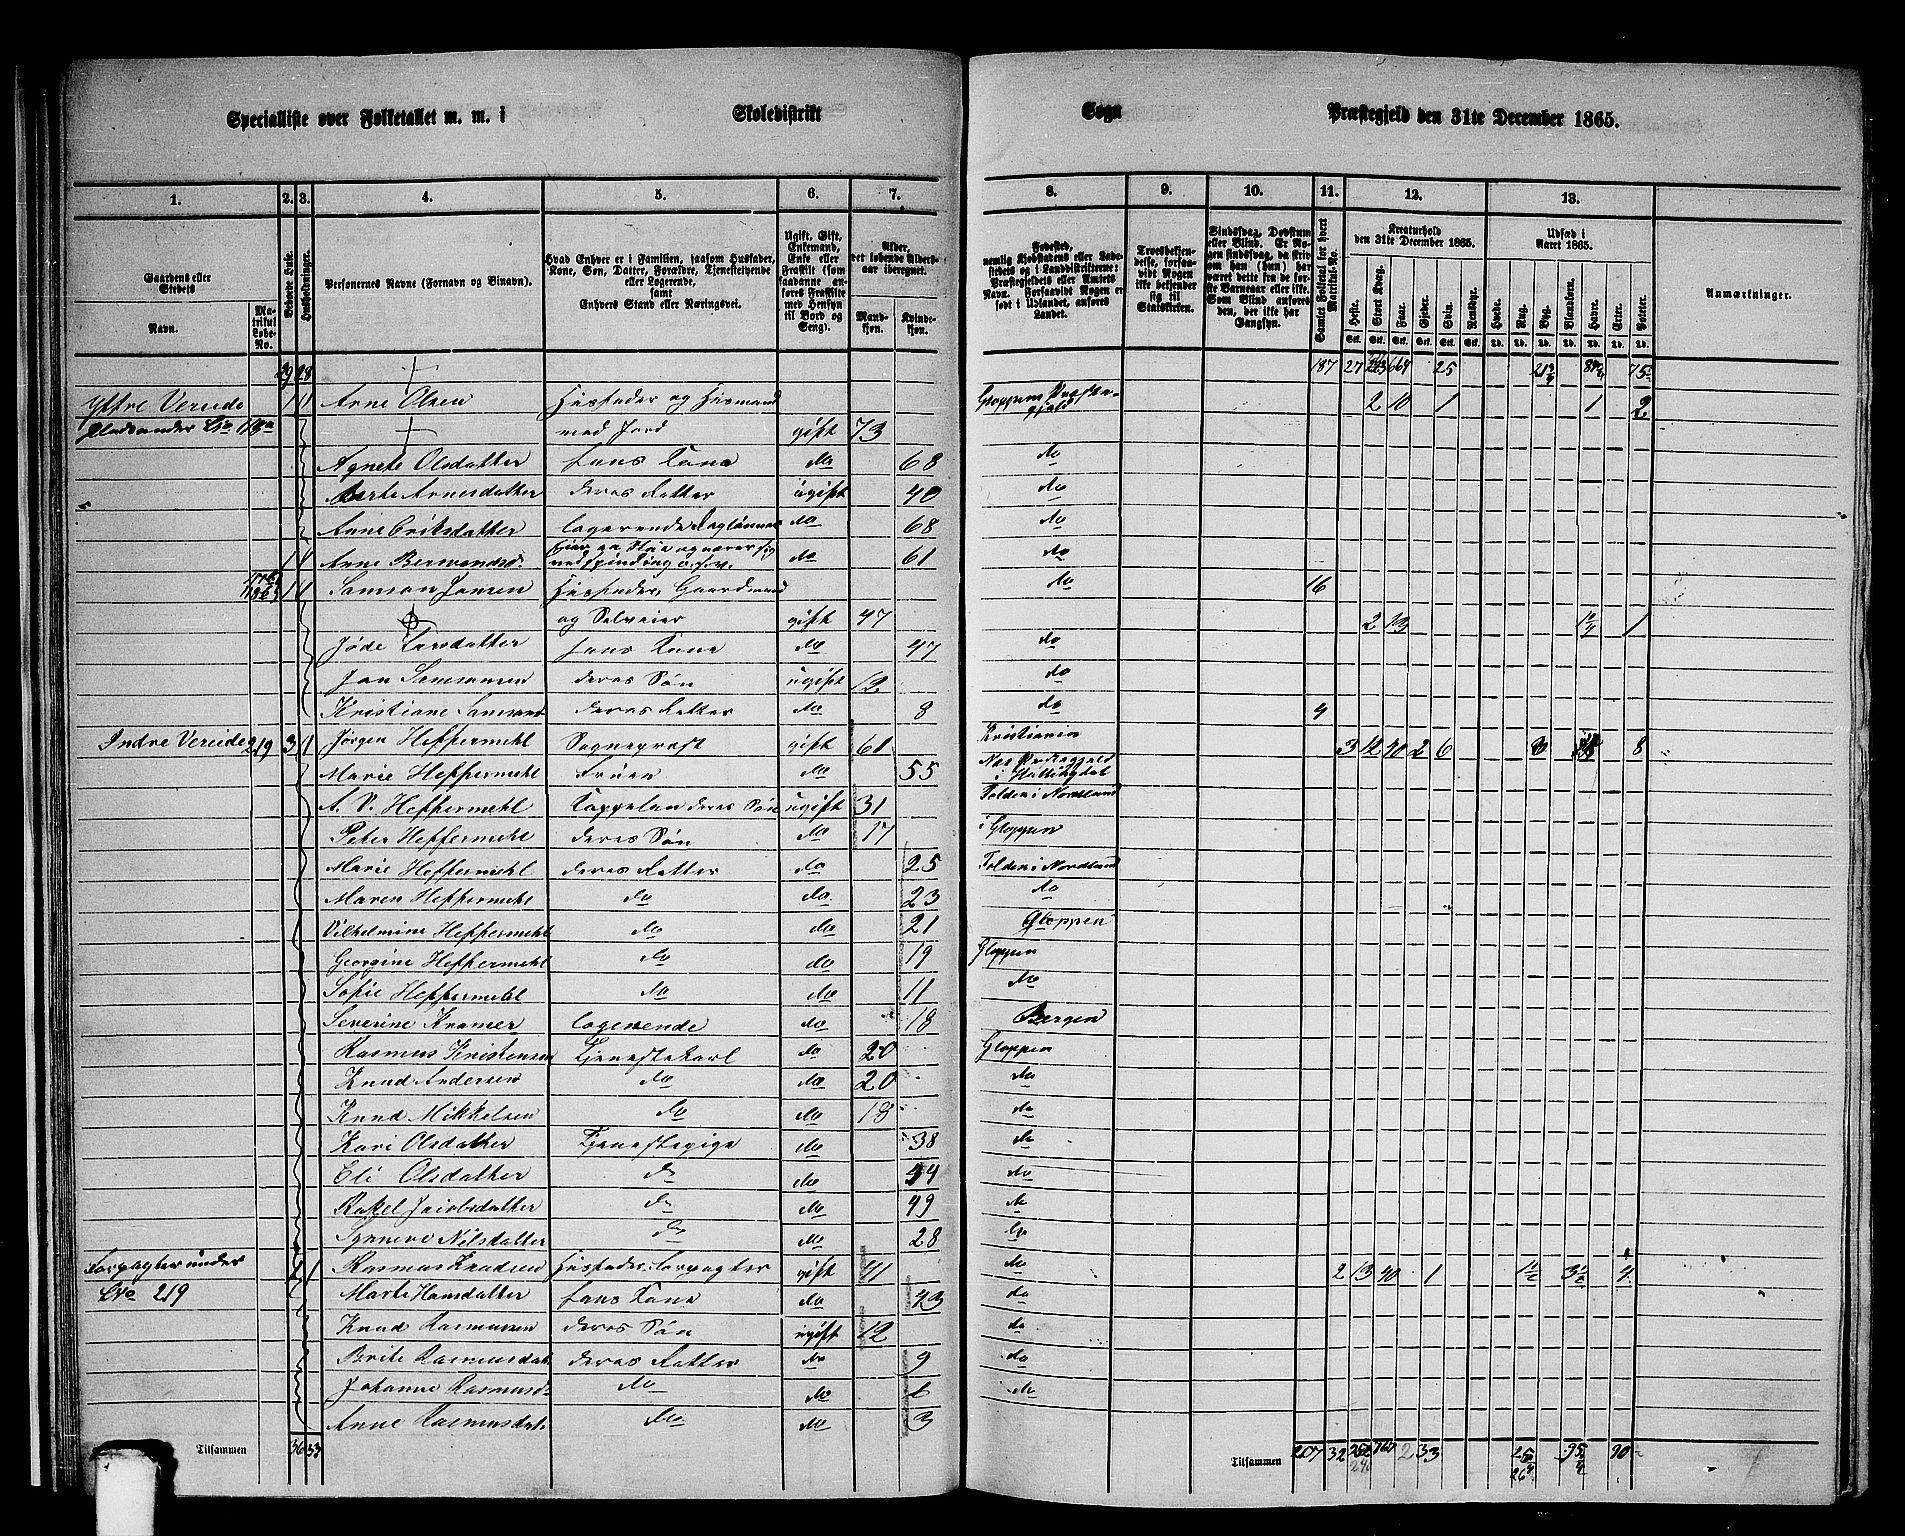 Specialliste over Folketallet m. m. i Skoledistrikt Sogn Præstegjeld den 31te December 1865.
1. 2. 3. 4. 5. 6. 7. 8. 9. 10. 11. 12. 13.
Gaardens eller Stedets
Navn. Matrikul Løbe-No.
Beboede Huse.
Husholdninger.
Personernes Navne (Fornavn og Binavn).
Hvad Enhver er i Familien, saasom Husfader, Kone, Søn, Datter, Forældre, Tjenestetyende eller Logerende, samt Enhvers Stand eller Næringsvei.
Ugift, Gift, Enkemand, Enke eller Fraskilt (som saadanne anføres Fraskilte med Hensyn til Bord og Seng).
Alder, det løbende Alders-aar iberegnet.
Mandkjøn. Kvindekjøn.
Fødested, nemlig Kjøbstadens eller Ladestedets og i Landdistrikterne: Præstegjeldets eller Amtets Navn. Forsaavidt Nogen er født i Udlandet, anføres Landet.
Troesbekjendelse, forsaavidt Nogen ikke bekjender sig til Statskirken.
Sindssvag, Døvstum eller Blind. Er Nogen sindssvag, da skrives om han (hun) har været dette fra de første Barneaar eller ikke. Som Blind anføres den, der ikke har Gangsyn.
Samlet Folketal for hvert Matrikul-No.
Kreaturhold den 31te December 1865.
Heste. Stort Kvæg. Faar. Gjeder. Svin. Rensdyr.
Udsæd i Aaret 1865.
Hvede. Rug. Byg. Blandkorn. Havre. Erter. Poteter.
Anmærkninger.
29 28 187 27 664 25 75
Yttre Vereide 1 1 Arne Olsen Husfader og Husmand Gloppens Præste-gjeld 2 10 1 1 2
med Jord gift 73
Agnete Olsdatter hans Kone do 68 do
Marte Arnesdatter deres Datter ugift 40 do
Anne Eriksdatter logerende do 68 do
1 1 Anne do 61 do
1 1 Samson Jonsen Husfader, Gaardmand do 16
og Selveier gift 47 2 13 1
Jøde Larsdatter hans Kone do 47 do
Jon Samsonsen deres Søn ugift 12 do
Kristiane Samsonsd deres Datter do 8 do 4
Indre Vereide 219 3 1 Jørgen Heffermehl Sognepræst gift 61 Kristiania 3 12 40 2 6 8
Marie Heffermehl Fruen do 55 Nes Præstegjeld i Hallingdal
A. V. Heffermehl Cappelan deres Søn ugift 31 Folden i Nordland
Peter Heffermehl deres Søn do 17 i Gloppen
Marie Heffermehl deres Datter do 25 Folden i Nordland
Maren Heffermehl do do 23 do
Vilhelmine Heffermehl do do 21 Gloppen
Georgine Heffermehl do do 19 Gloppen
Sofie Heffermehl do do 11 do
Severine Kramer logerende do 18 Bergen
Rasmus Kristensen Tjenestekarl do 20 Gloppen
Knud Andersen do do 20 do
Knud Mikkelsen do do 18 do
Kari Olsdatter Tjenestepige do 38 do
Eli Olsdatter do do 44 do
Rakel Jacobsdatter do do 49 do
Synneve Nilsdatter do do 28 do
Forpagter under 1 Rasmus Knudsen Husfader, Forpagter gift 41 do 2 13 40 1 4
No 219 Marte Hansdatter hans Kone do 43 do
Knud Rasmussen deres Søn ugift 12 do
Brite Rasmusdat deres Datter do 9 do
Johanne Rasmusd do do 6 do
Anne Rasmusdat do do 3
Tilsammen 36 33 Tilsammen 207 32 767 2 33 90